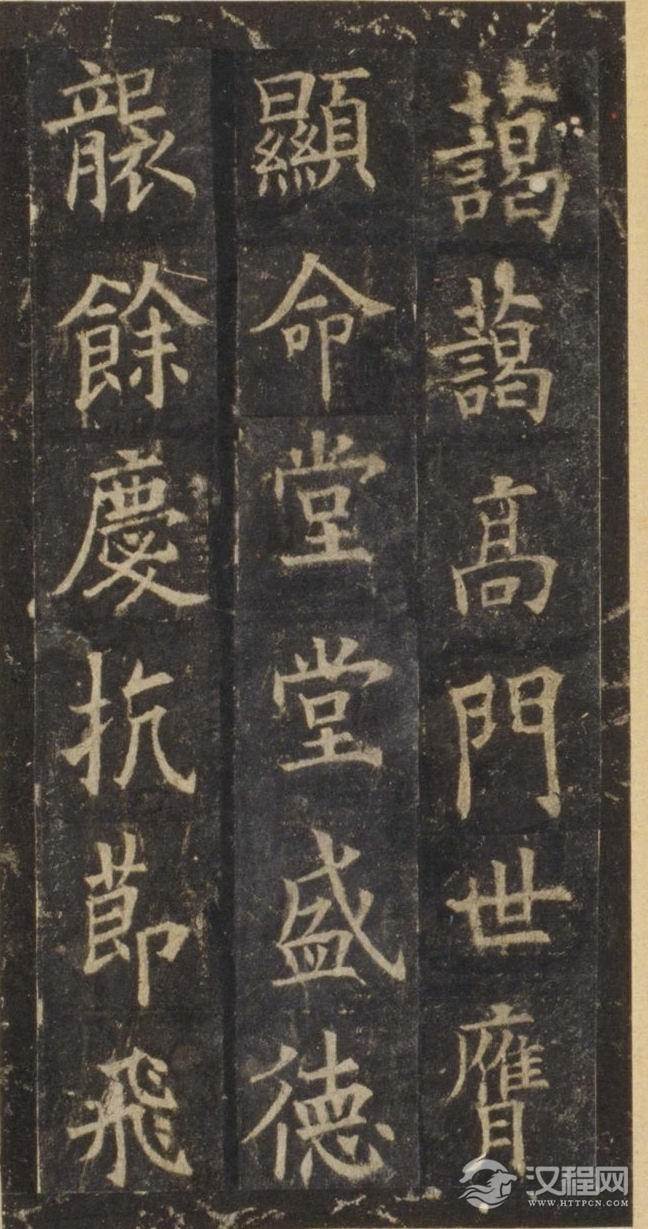 藹藹高門世膺
顯命堂堂盛德
襲餘慶抗節飛
汉程网
WWW.HTTPCN.COM